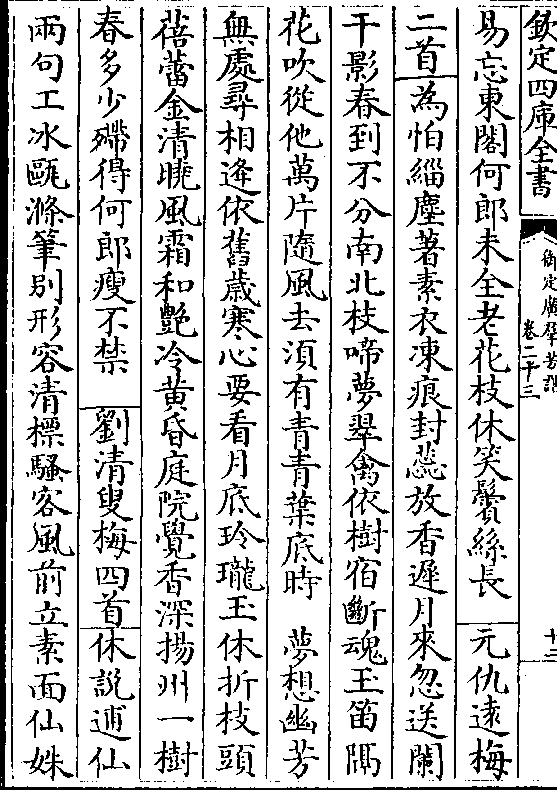 欽定四庫全書
御定廣羣芳譜
卷二十三
十二
易忘東閣何郎未全老花枝休笑鬢絲長 元仇遠梅
二首為怕緇塵著素衣凍痕封蕋放香遲月來忽送闌
干影春到不分南北枝啼夢翠禽依樹宿斷魂玉笛隔
花吹從他萬片隨風去須有青青葉底時 夢想幽芳
無處尋相逢依舊歲寒心要看月底玲瓏玉休折枝頭
蓓蕾金清曉風霜和艷冷黄昏庭院覺香深揚州一樹
春多少殢得何郎瘦不禁 劉清叟梅四首休說逋仙
兩句工冰甌滌筆别形容清標騷客風前立素面仙姝